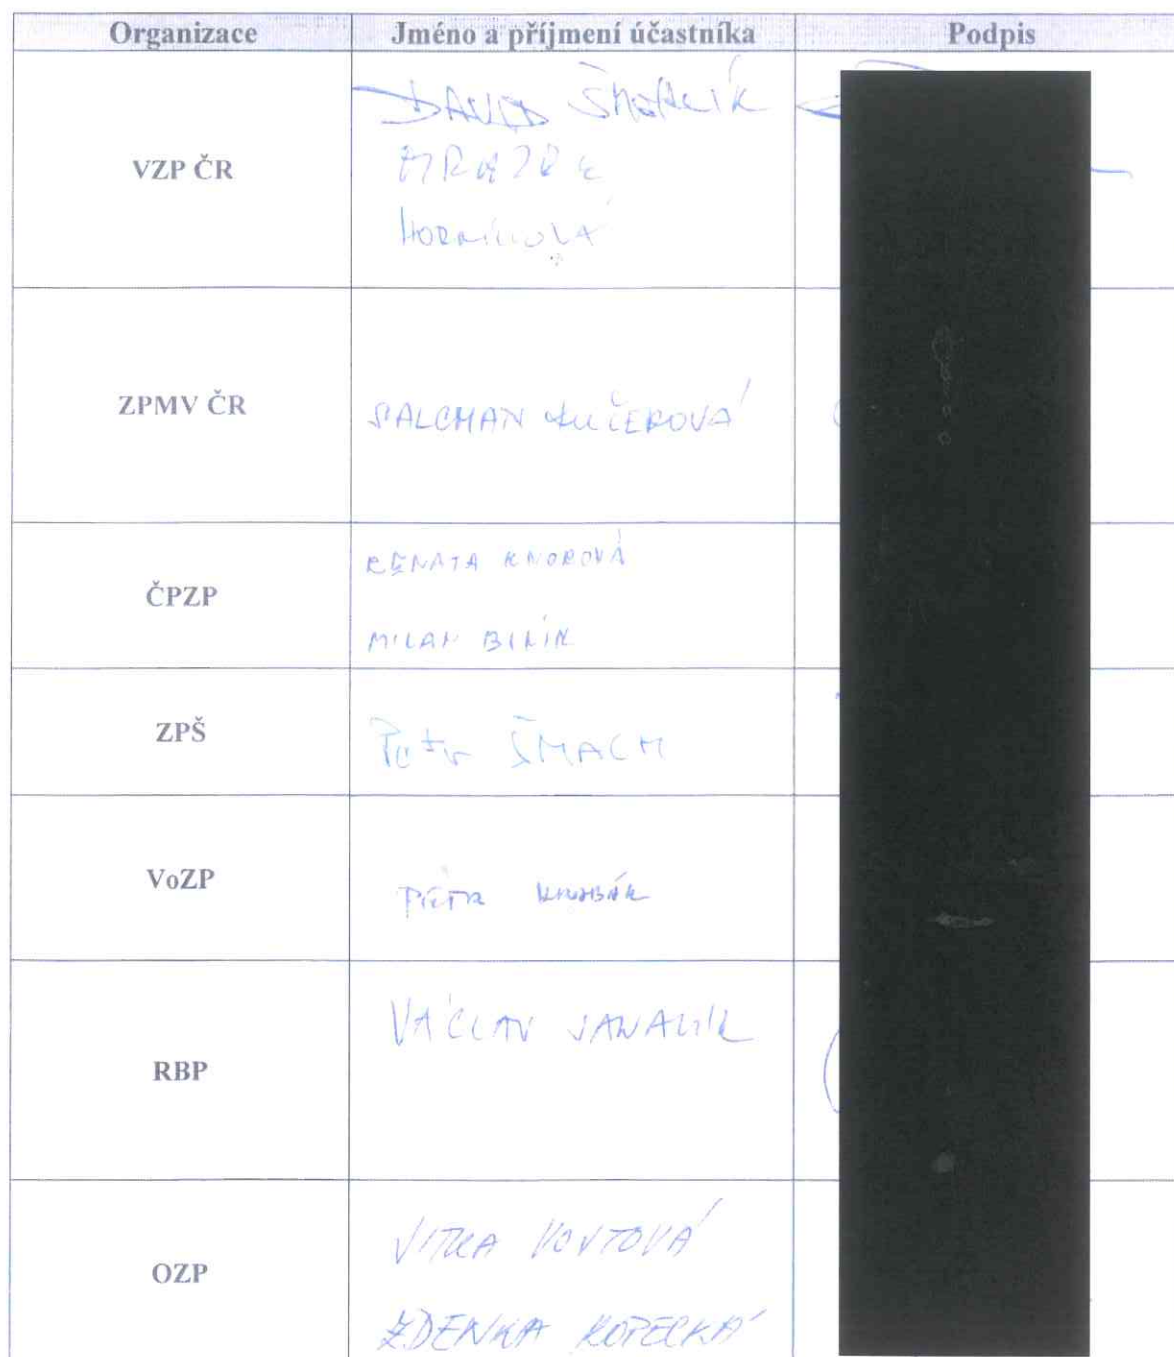 Organizace Jméno a příjmení účastníka Podpis
VZP ČR
DAVID
ZPMV ČR
SALCMAN KUČEROVÁ
ČPZP
RENATA KNOROVÁ
MILAN BILÍK
ZPŠ
Petr ŠMACH
VoZP
PETR
RBP
VÁCLAV JANALÍK
OZP
JITKA VOJTOVÁ
ZDENKA KOPECKÁ